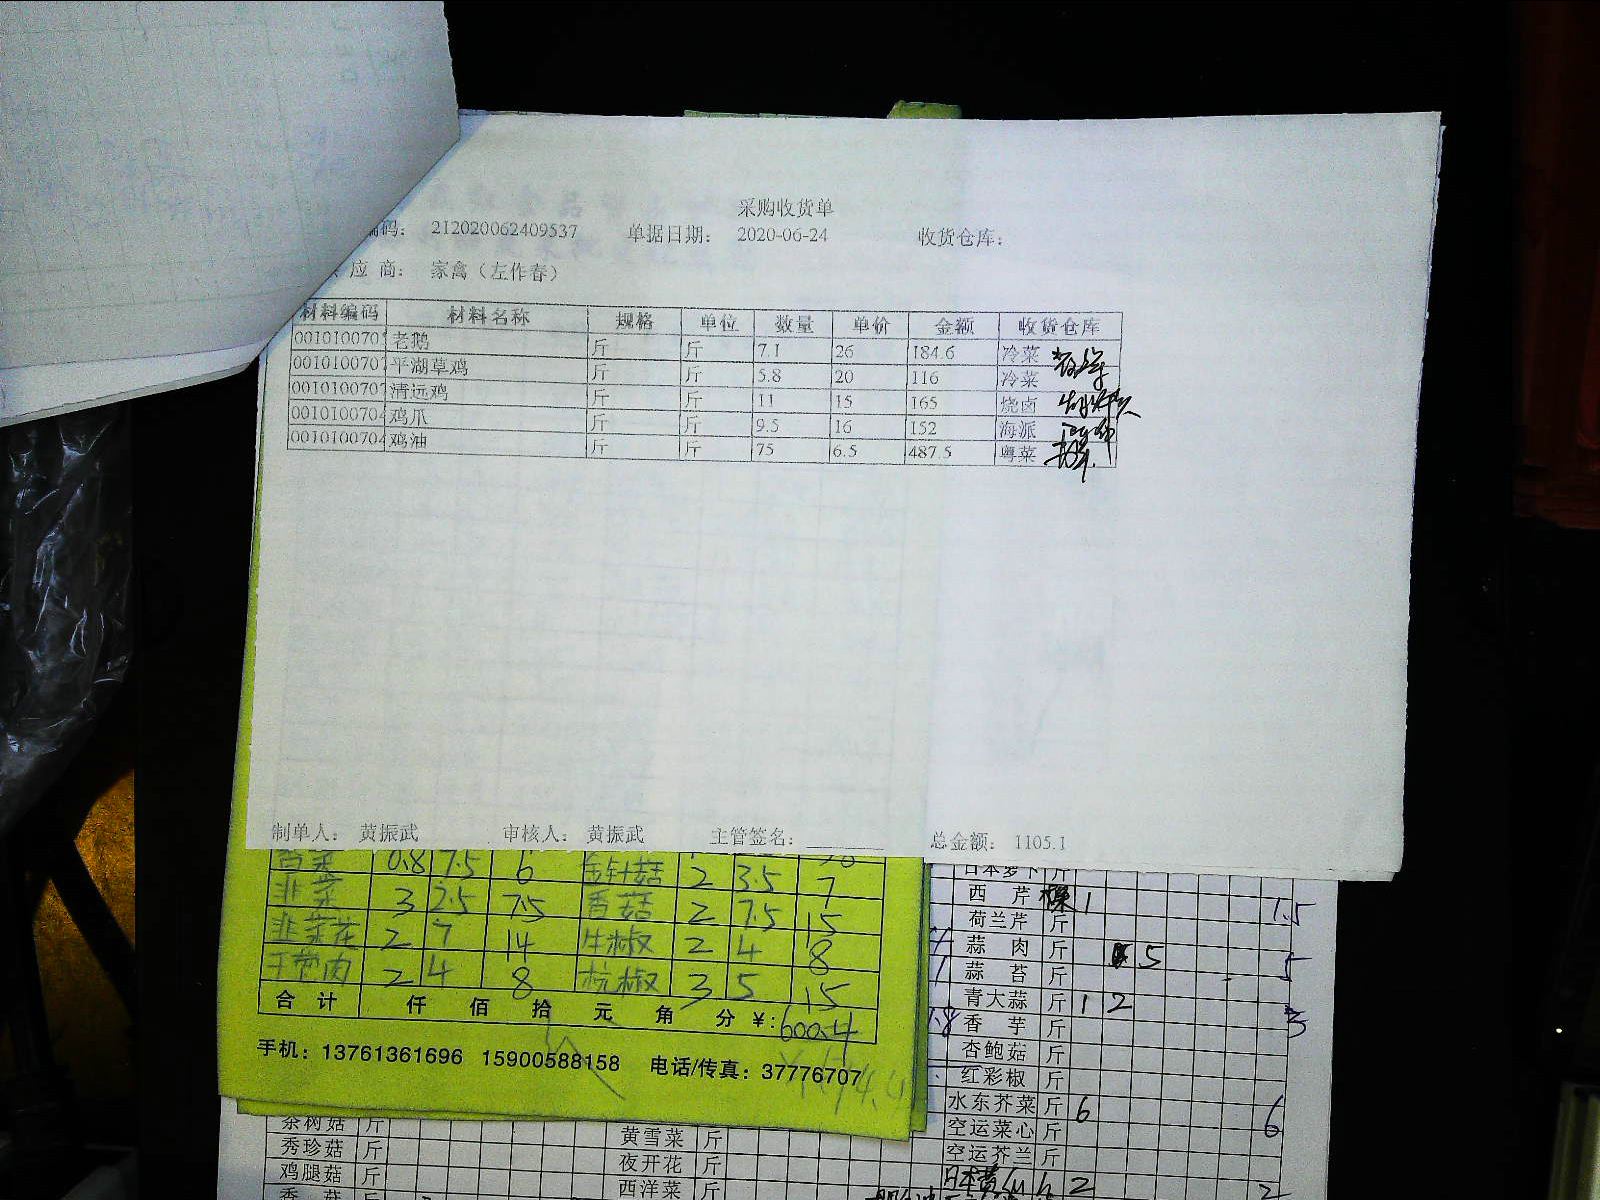 采购收货单
编码： 212020062409537 单据日期： 2020-06-24 收货仓库：
应 商： 家禽（左作春）
材料编码 材料名称 规格 单位 数量 单价 金额 收货仓库
0010100701 老鹅 斤 斤 7.1 26 184.6 冷菜
001010070 平湖草鸡 斤 斤 5.8 20 116 冷菜
001010070 清远鸡 斤 斤 11 15 165 烧卤
0010100704 鸡爪 斤 斤 9.5 16 152 海派
0010100704 鸡油 斤 斤 75 6.5 487.5 粤菜
制单人： 黄振武 审核人： 黄振武 主管签名： 总金额： 1105.1
0.8 7.5 6 金针菇 2 3.5 7
韭菜 3 2.5 7.5 香菇 2 7.5 15
韭菜花 2 7 14 牛椒 2 4 8
2 4 8 杭椒 3 5 15
合 计 仟 佰 拾 元 角 分 ¥: 600.4
手机：13761361696 15900588158 电话/传真：37776707
日本萝卜 斤
西 芹 1 1.5
荷兰芹 斤
蒜 肉 斤 5 5
蒜 苔 斤
青大蒜 斤 1 2 3
香 芋 斤
杏鲍菇 斤
红彩椒 斤
水东芥菜 斤 6 6
空运菜心 斤
空运芥兰 斤
2 2
茶树菇 斤
秀珍菇 斤
鸡腿菇 斤
香 菇 斤
黄雪菜 斤
夜开花 斤
西洋菜 斤